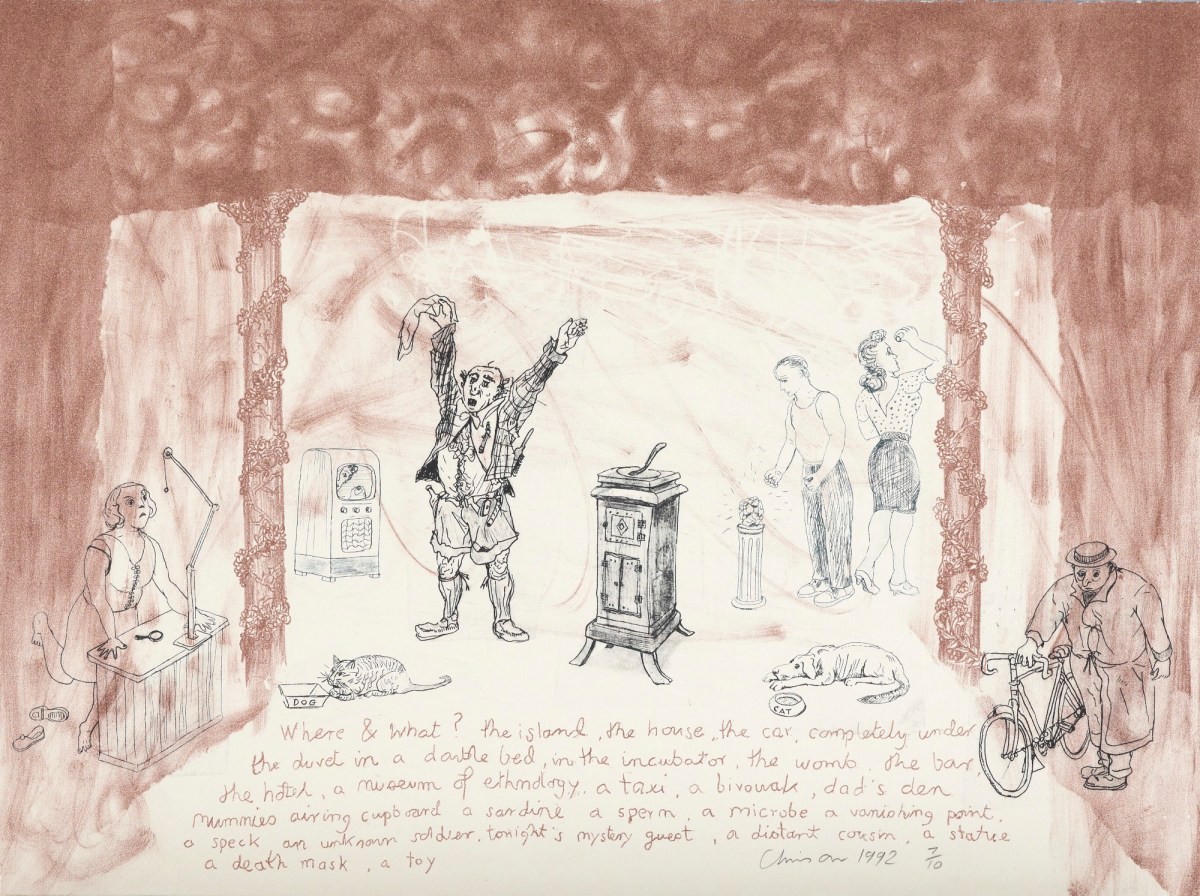 DOG
CAT
Where & What? the island, the house, the car, completely under
the duvet in a double bed, in the incubator, the womb. the bar,
the hotel, a museum of ethnology. a taxi, a bivowak, dad's den
mummies airing cupboard a sardine a sperm, a microbe a vanishing point.
a speck an unknown soldier. tonight's mystery guest, a distant cousin, a statue
a death mask, a toy
1992 7/10